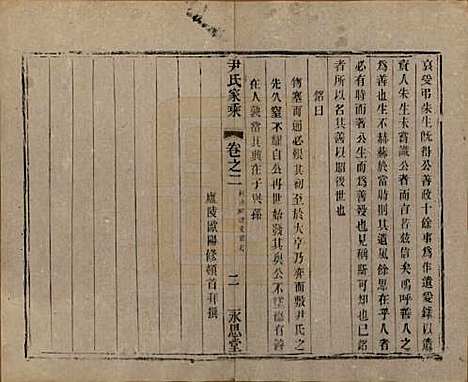 哀受弔朱生旣得公善政十餘事爲作遺愛錄以遺
貴人朱生未嘗識公者而言若茲信矣嗚呼善人之
爲善也生不赫赫於當時則其遺風餘思在乎人者
必有時而發著公生而見稱斯可知也已銘
者所以名其善以昭後世也
銘曰
物塞而通必根其初至於大亨乃奕而敷尹氏之
先久窒不耀自公再世始發其奥公不墜德有善
在人孰當其興在子與孫
廬陵歐陽修頓首拜撰
尹氏家乘
卷之二
二
永思堂